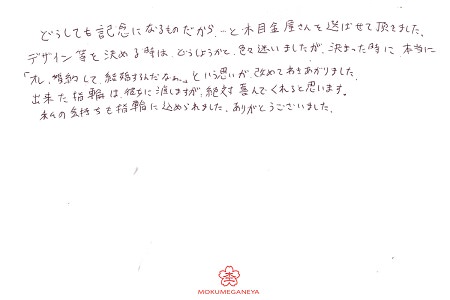 どうしても記念になるものだから…と木目金屋さんを選ばせて頂きました。
デザイン等を決める時は、どうしようかと、色々迷いましたが、決まった時に、本当に
「オレ、婚約して、結婚するんだなぁ。」という思いが改めてわきあがりました。
出来た指輪は、彼女に渡しますが、絶対喜んでくれると思います。
私の気持ちも指輪に込められました。ありがとうございました。
MOKUMEGANEYA